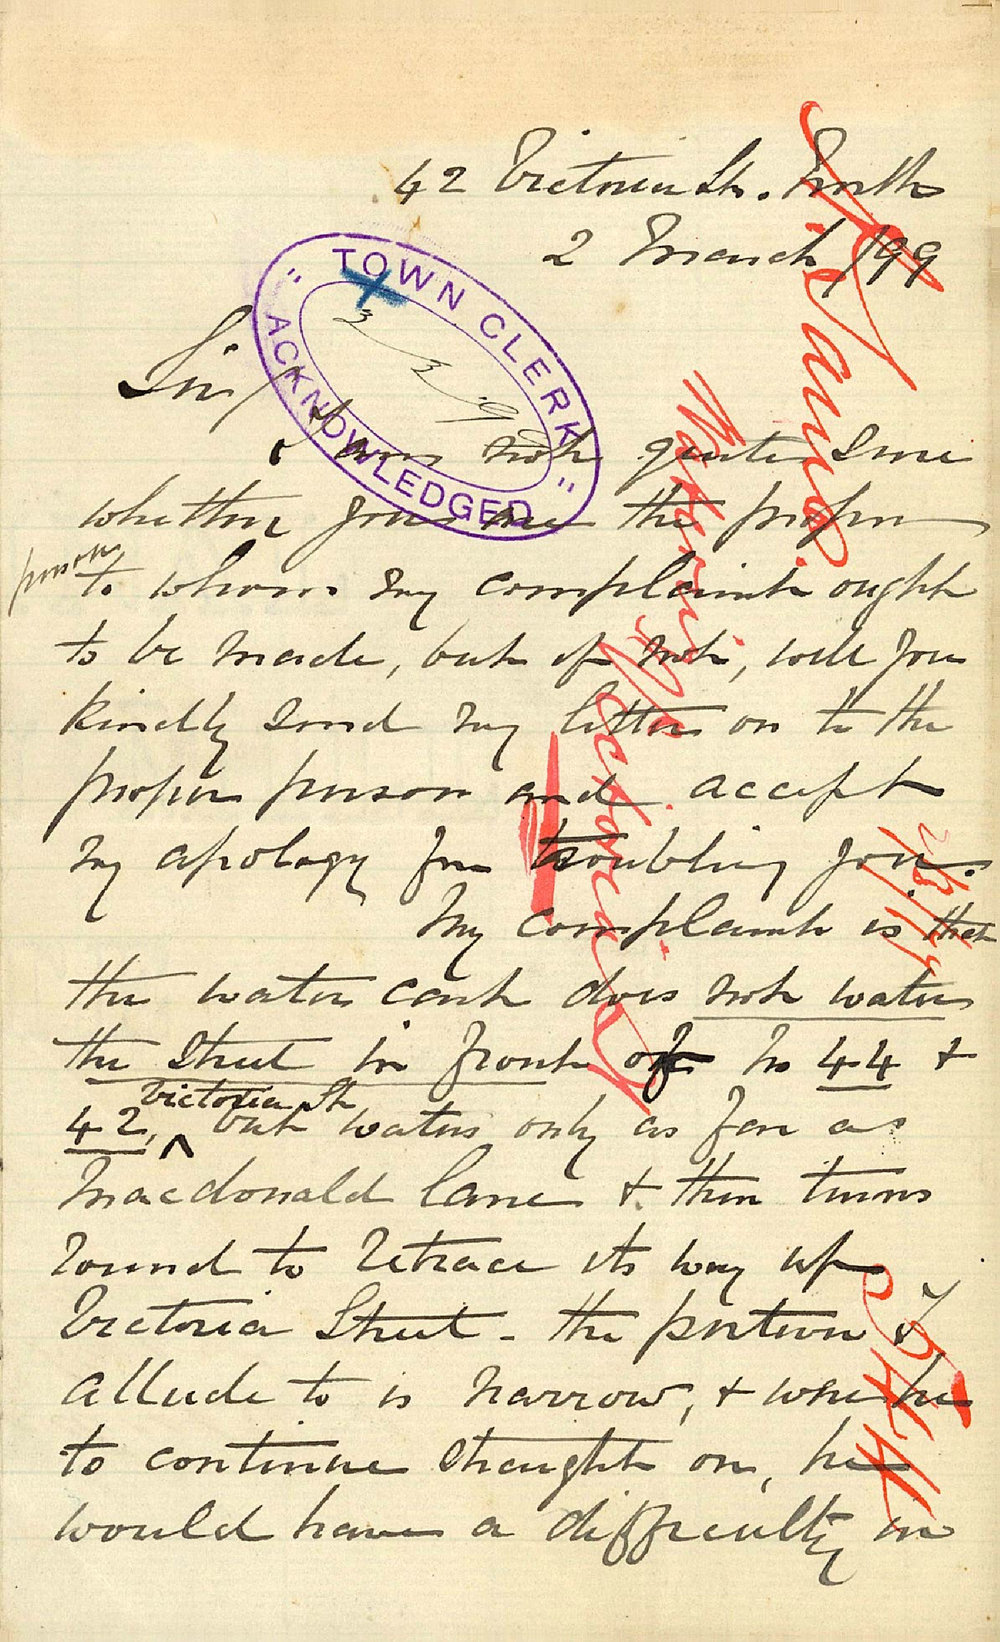 42 Victoria St. North
2 March /99
"TOWN CLERK"
ACKNOWLEDGED
3/3/9
Sir/
I am not quite sure
whether you are the proper
person
to whom my complaint ought
to be made, but if not, will you
kindly send my letter on to the
proper person and accept
my apology for troubling you.
My complaint is that
the water cart does not water
the Street in front of No 44 &
Victoria St
42, ^ but waters only as far as
Macdonald Lane & then turns
round to retrace its way up
Victoria Street - the portion I
allude to is narrow, & were he
to continue straight on, he
would have a difficulty in
Watering Victoria St